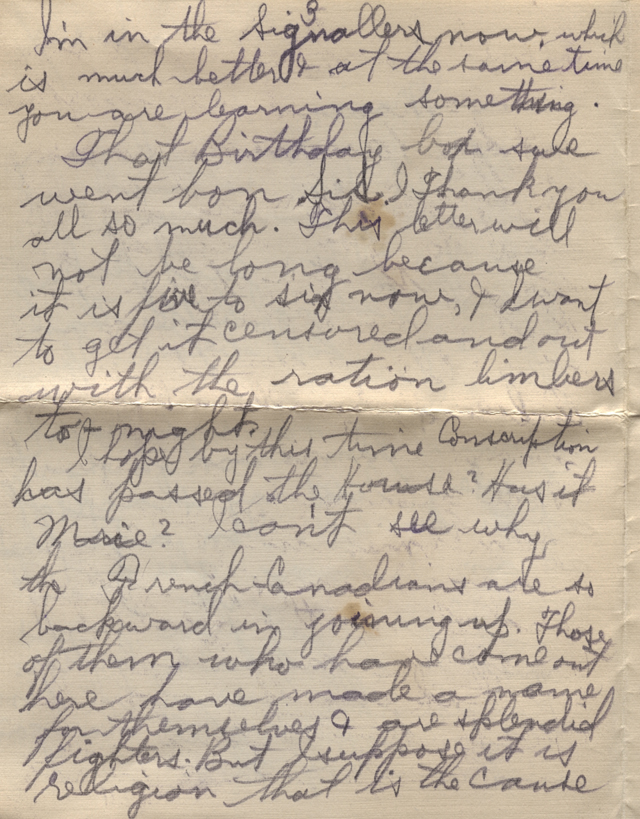 3
I'm in the Signallers now, which
is much better & at the same time
you are learning something.
That Birthday box sure
went bon, Sis. I Thank you
all so much. This letter will
not be long because
it is five to six now, I want
to get it censured and out
with the ration limbers
to night.
I hope by this time Conscription
has passed the House? Has it
Marie? I can't see why
the French Canadians are so
backward in joining up. Those
of them who have come out
here have made a name
for themselves & are splendid
fighters. But I suppose it is
religion that is the cause